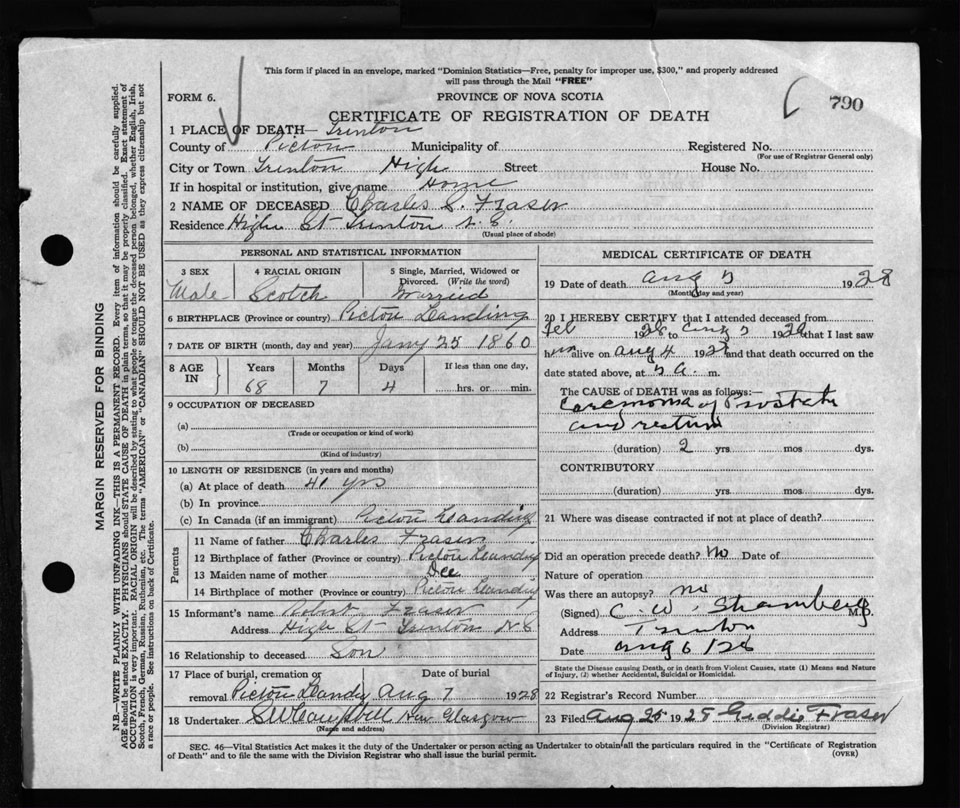 This form if placed in an envelope, marked "Dominion Statistics—Free, penalty for improper use, $300," and properly addressed
will pass through the Mail "FREE"
FORM 6.
PROVINCE OF NOVA SCOTIA
790
CERTIFICATE OF REGISTRATION OF DEATH
1 PLACE OF DEATH— Trenton
County of Pictou Municipality of Registered No.
(For use of Registrar General only)
City or Town Trenton High Street House No.
If in hospital or institution, give name Home
2 NAME OF DECEASED Charles S. Fraser
Residence High St Trenton N.S.
(Usual place of abode)
PERSONAL AND STATISTICAL INFORMATION
3 SEX 4 RACIAL ORIGIN 5 Single, Married, Widowed or
Divorced. (Write the word)
Male Scotch Married
6 BIRTHPLACE (Province or country) Pictou Landing
7 DATE OF BIRTH (month, day and year) Jany 25 1860
8 AGE IN Years Months Days If less than one day,
68 7 4 hrs. or min.
9 OCCUPATION OF DECEASED
(a)
(Trade or occupation or kind of work)
(b)
(Kind of industry)
10 LENGTH OF RESIDENCE (in years and months)
(a) At place of death 41 yrs
(b) In province
(c) In Canada (if an immigrant) Pictou Landing
Parents
11 Name of father Charles Fraser
12 Birthplace of father (Province or country) Pictou Landing
13 Maiden name of mother
14 Birthplace of mother (Province or country) Pictou Landing
15 Informant's name Robert Fraser
Address High St Trenton N S
16 Relationship to deceased Son
17 Place of burial, cremation or Date of burial
removal Pictou Landg Aug 7 1928
18 Undertaker S W Campbell New Glasgow
(Name and address)
MEDICAL CERTIFICATE OF DEATH
19 Date of death Aug 5 1928
(Month, day and year)
20 I HEREBY CERTIFY that I attended deceased from
Feb 1928 to Aug 5 1928 that I last saw
him alive on Aug 4 1928 and that death occurred on the
date stated above, at 5 a. m.
The CAUSE OF DEATH was as follows:—
Carcinoma of Prostate
and rectum
(duration) 2 yrs mos dys.
CONTRIBUTORY
(duration) yrs mos dys.
21 Where was disease contracted if not at place of death?
Did an operation precede death? No Date of
Nature of operation
Was there an autopsy? No
(Signed) C. W. M.D.
Address Trenton
Date Aug 6/28
State the Disease causing Death, or in death from Violent Causes, state (1) Means and Nature
of Injury, (2) whether Accidental, Suicidal or Homicidal.
22 Registrar's Record Number
23 Filed Aug 25 1928 Fraser
(Division Registrar)
SEC. 46—Vital Statistics Act makes it the duty of the Undertaker or person acting as Undertaker to obtain all the particulars required in the "Certificate of Registration
of Death" and to file the same with the Division Registrar who shall issue the burial permit. (OVER)
MARGIN RESERVED FOR BINDING
N.B.—WRITE PLAINLY WITH UNFADING INK—THIS IS A PERMANENT RECORD. Every item of information should be carefully supplied.
AGE should be stated EXACTLY. PHYSICIANS should STATE CAUSE OF DEATH in plain terms, so that it may be properly classified. Exact statement of
OCCUPATION is very important. RACIAL ORIGIN will be described by stating to what people or tongue the deceased person belonged, whether English, Irish,
Scotch, French, German, Russian, Ruthenian, etc. The terms "AMERICAN" or "CANADIAN" SHOULD NOT BE USED as they express citizenship but not
a race or people. See instructions on back of Certificate.